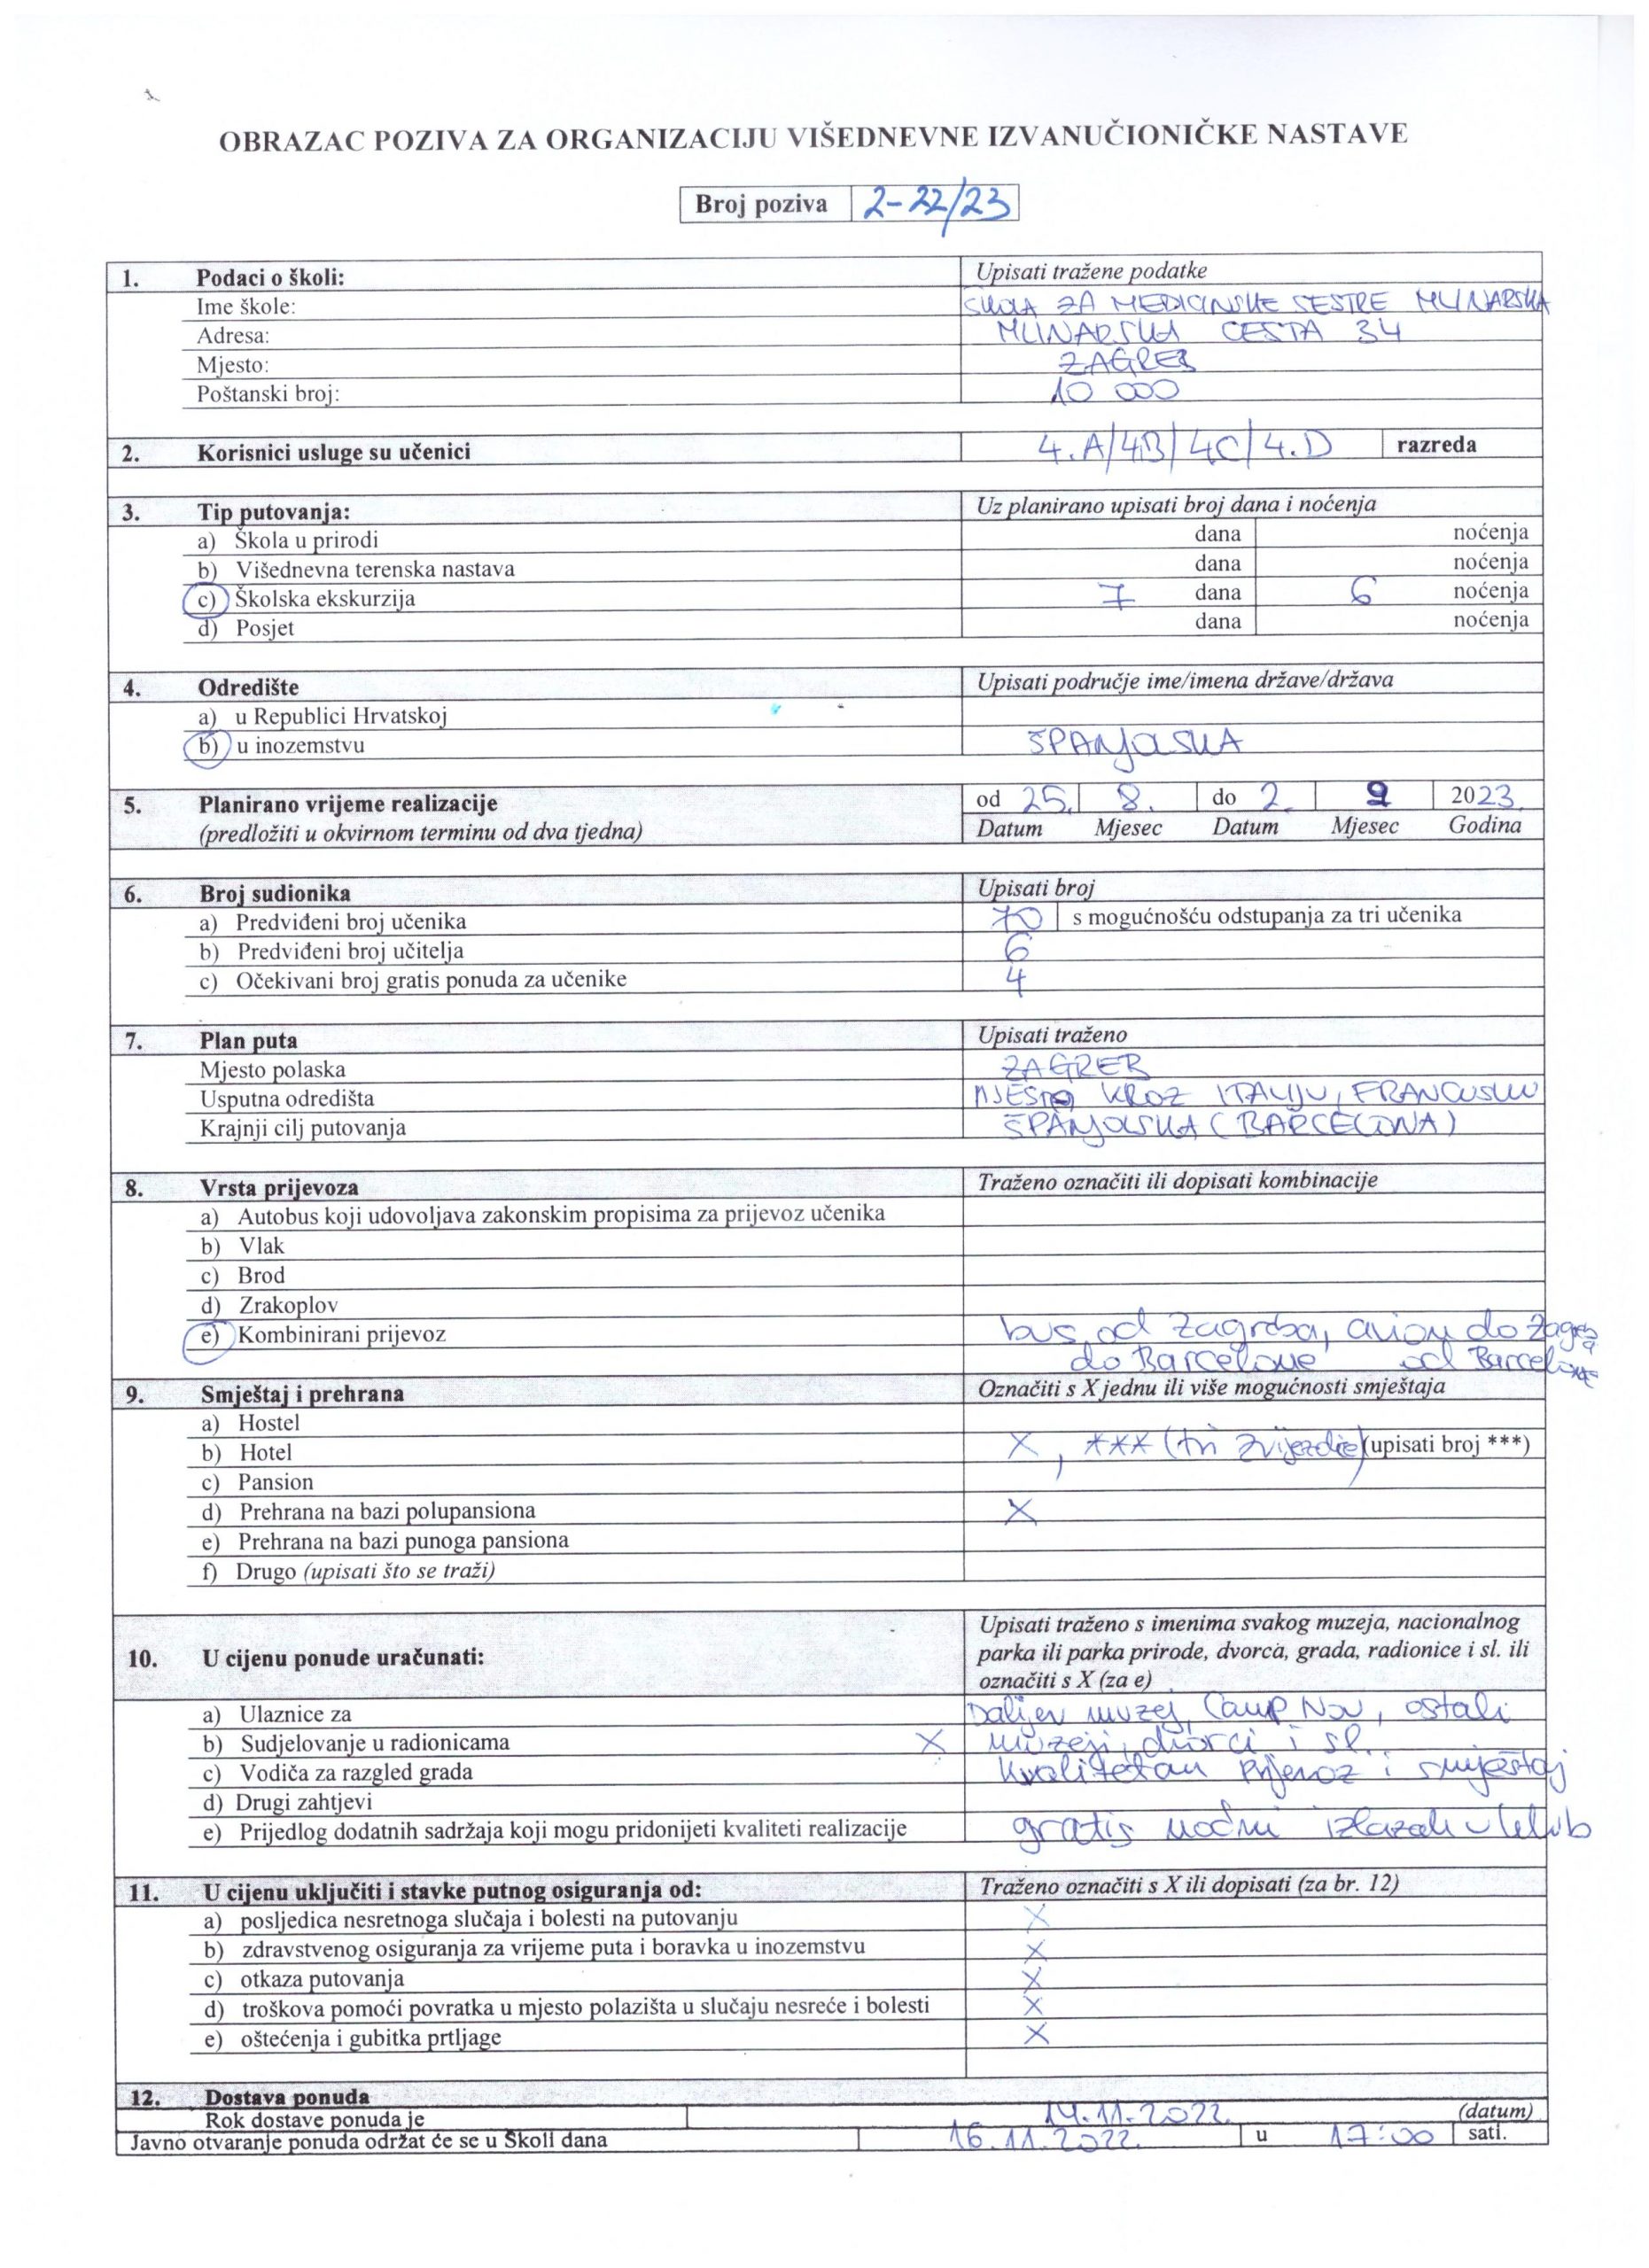 OBRAZAC POZIVA ZA ORGANIZACIJU VIŠEDNEVNE IZVANUČIONIČKE NASTAVE
Broj poziva 2-22/23
1. Podaci o školi: Upisati tražene podatke
Ime škole: ŠKOLA ZA MEDICINSKE SESTRE MLINARSKA
Adresa: MLINARSKA CESTA 34
Mjesto: ZAGREB
Poštanski broj: 10 000
2. Korisnici usluge su učenici 4.A/4B/4C/4.D razreda
3. Tip putovanja: Uz planirano upisati broj dana i noćenja
a) Škola u prirodi dana noćenja
b) Višednevna terenska nastava dana noćenja
c) Školska ekskurzija 7 dana 6 noćenja
d) Posjet dana noćenja
4. Odredište Upisati područje ime/imena države/država
a) u Republici Hrvatskoj
b) u inozemstvu ŠPANJOLSKA
5. Planirano vrijeme realizacije od 25. 8. do 2. 9 2023.
(predložiti u okvirnom terminu od dva tjedna) Datum Mjesec Datum Mjesec Godina
6. Broj sudionika Upisati broj
a) Predviđeni broj učenika 70 s mogućnošću odstupanja za tri učenika
b) Predviđeni broj učitelja 6
c) Očekivani broj gratis ponuda za učenike 4
7. Plan puta Upisati traženo
Mjesto polaska ZAGREB
Usputna odredišta MJESTA KROZ ITALIJU, FRANCUSKU
Krajnji cilj putovanja ŠPANJOLSKA (BARCELONA)
8. Vrsta prijevoza Traženo označiti ili dopisati kombinacije
a) Autobus koji udovoljava zakonskim propisima za prijevoz učenika
b) Vlak
c) Brod
d) Zrakoplov
e) Kombinirani prijevoz bus od Zagreba, avion do Zagreba
do Barcelone od Barcelone
9. Smještaj i prehrana Označiti s X jednu ili više mogućnosti smještaja
a) Hostel
b) Hotel X, *** (tri zvijezdice) (upisati broj ***)
c) Pansion
d) Prehrana na bazi polupansiona X
e) Prehrana na bazi punoga pansiona
f) Drugo (upisati što se traži)
10. U cijenu ponude uračunati: Upisati traženo s imenima svakog muzeja, nacionalnog
parka ili parka prirode, dvorca, grada, radionice i sl. ili
označiti s X (za e)
a) Ulaznice za Dalijev muzej, Camp Nou, ostali
b) Sudjelovanje u radionicama X muzeji, dvorci i sl.
c) Vodiča za razgled grada Kvalitetan prijevoz i smještaj
d) Drugi zahtjevi
e) Prijedlog dodatnih sadržaja koji mogu pridonijeti kvaliteti realizacije gratis noćni izlazak u klub
11. U cijenu uključiti i stavke putnog osiguranja od: Traženo označiti s X ili dopisati (za br. 12)
a) posljedica nesretnoga slučaja i bolesti na putovanju X
b) zdravstvenog osiguranja za vrijeme puta i boravka u inozemstvu X
c) otkaza putovanja X
d) troškova pomoći povratka u mjesto polazišta u slučaju nesreće i bolesti X
e) oštećenja i gubitka prtljage X
12. Dostava ponuda
Rok dostave ponuda je 14.11.2022. (datum)
Javno otvaranje ponuda održat će se u Školi dana 16.11.2022. u 17:00 sati.